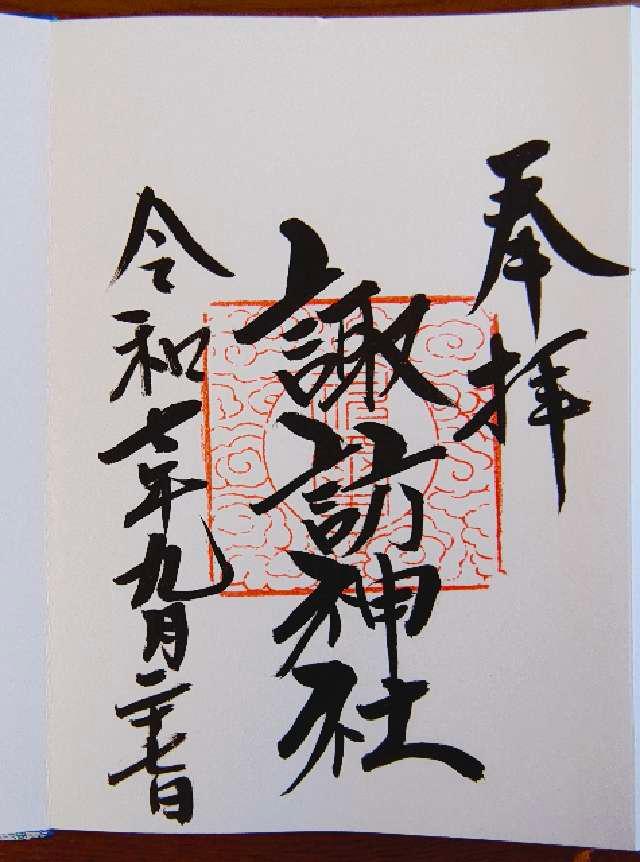 奉拝
諏訪神社
令和七年九月二十七日